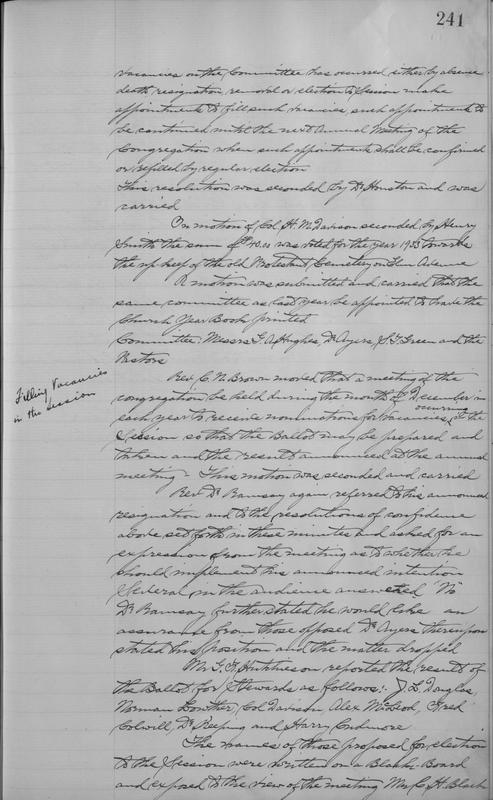 241
vacancies on the Committee has occurred either by absence
death, resignation, removal or election to Session make
appointments to fill such vacancies, such appointments to
be continued until the next Annual Meeting of the
Congregation when such appointments shall be confirmed
or refilled by regular election
This resolution was seconded by Dr Houston and was
carried
On motion of Col. H. M. Davison seconded by Henry
Smith the sum of $10.00 was voted for the year 1933 towards
the upkeep of the old Protestant Cemetery on Elm Avenue
A motion was submitted and carried that the
same committee as last year be appointed to have the
Church Year Book printed
Committee, Messrs Hughes, Dr Ayers, Green and the
Pastors
Filling Vacancies
in the Session
Rev. C. N. Brown moved that a meeting of the
congregation be held during the month of December in
each year to receive nominations for vacancies occurring in the
Session so that the Ballot may be prepared and
taken and the result announced to the annual
meeting - This motion was seconded and carried
Rev Dr Ramsay again referred to his announced
resignation and to the resolutions of confidence
above set forth in these minutes and asked for an
expression from the meeting as to whether he
should implement his announced intention
Several in the audience answered "No"
Dr Ramsay further stated he would like an
assurance from those opposed Dr Ayers thereupon
stated his position and the matter dropped
Mr. Hutcheson reported the result of
the Ballot for Stewards as follows:- J. L. Douglas,
Norman Lowther, Col Davison, Alex McLeod, Fred
Colwill, Dr Keeping and Harry Cudmore
The names of those proposed for election
to the Session were written on a Black Board
and exposed to the view of the meeting Mr C. H. Black